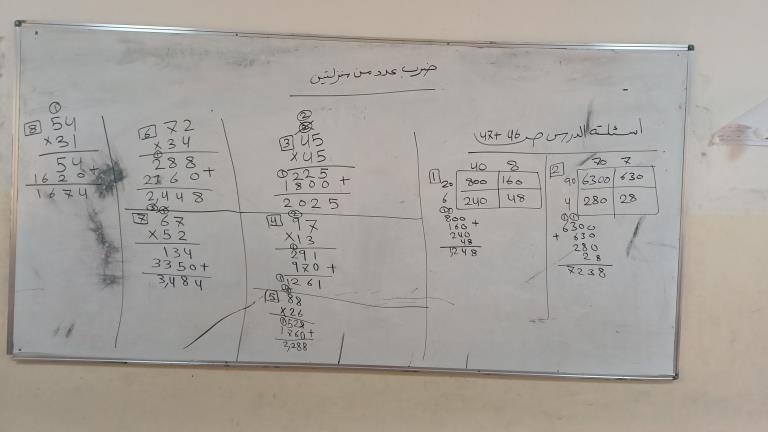 ضرب عدد من منزلتين
أسئلة الدرس ص 46 + 47
1
40 8
20 800 160
6 240 48
800
160 +
240
48
1,248
2
70 7
90 6300 630
4 280 28
6300
+ 630
280
28
7238
3
2
45
×45
225
1800 +
2025
4
97
×13
291
970 +
1261
5
88
×26
528
1760+
2,288
6
72
×34
288
2160+
2,448
7
67
×52
134
3350+
3,484
8
1
54
×31
54
1620+
1674